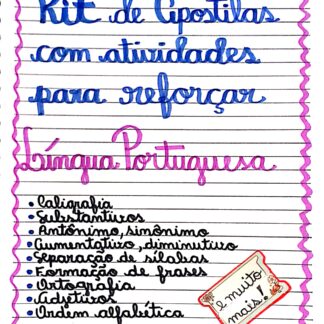 Kit de Apostilas
com atividades
para reforçar
Língua Portuguesa
• Caligrafia
• Substantivos
• Antônimo, sinônimo
• Aumentativo, diminutivo
• Separação de sílabas
• Formação de frases
• Ortografia
• Adjetivos
• Ordem alfabética
e muito
mais!